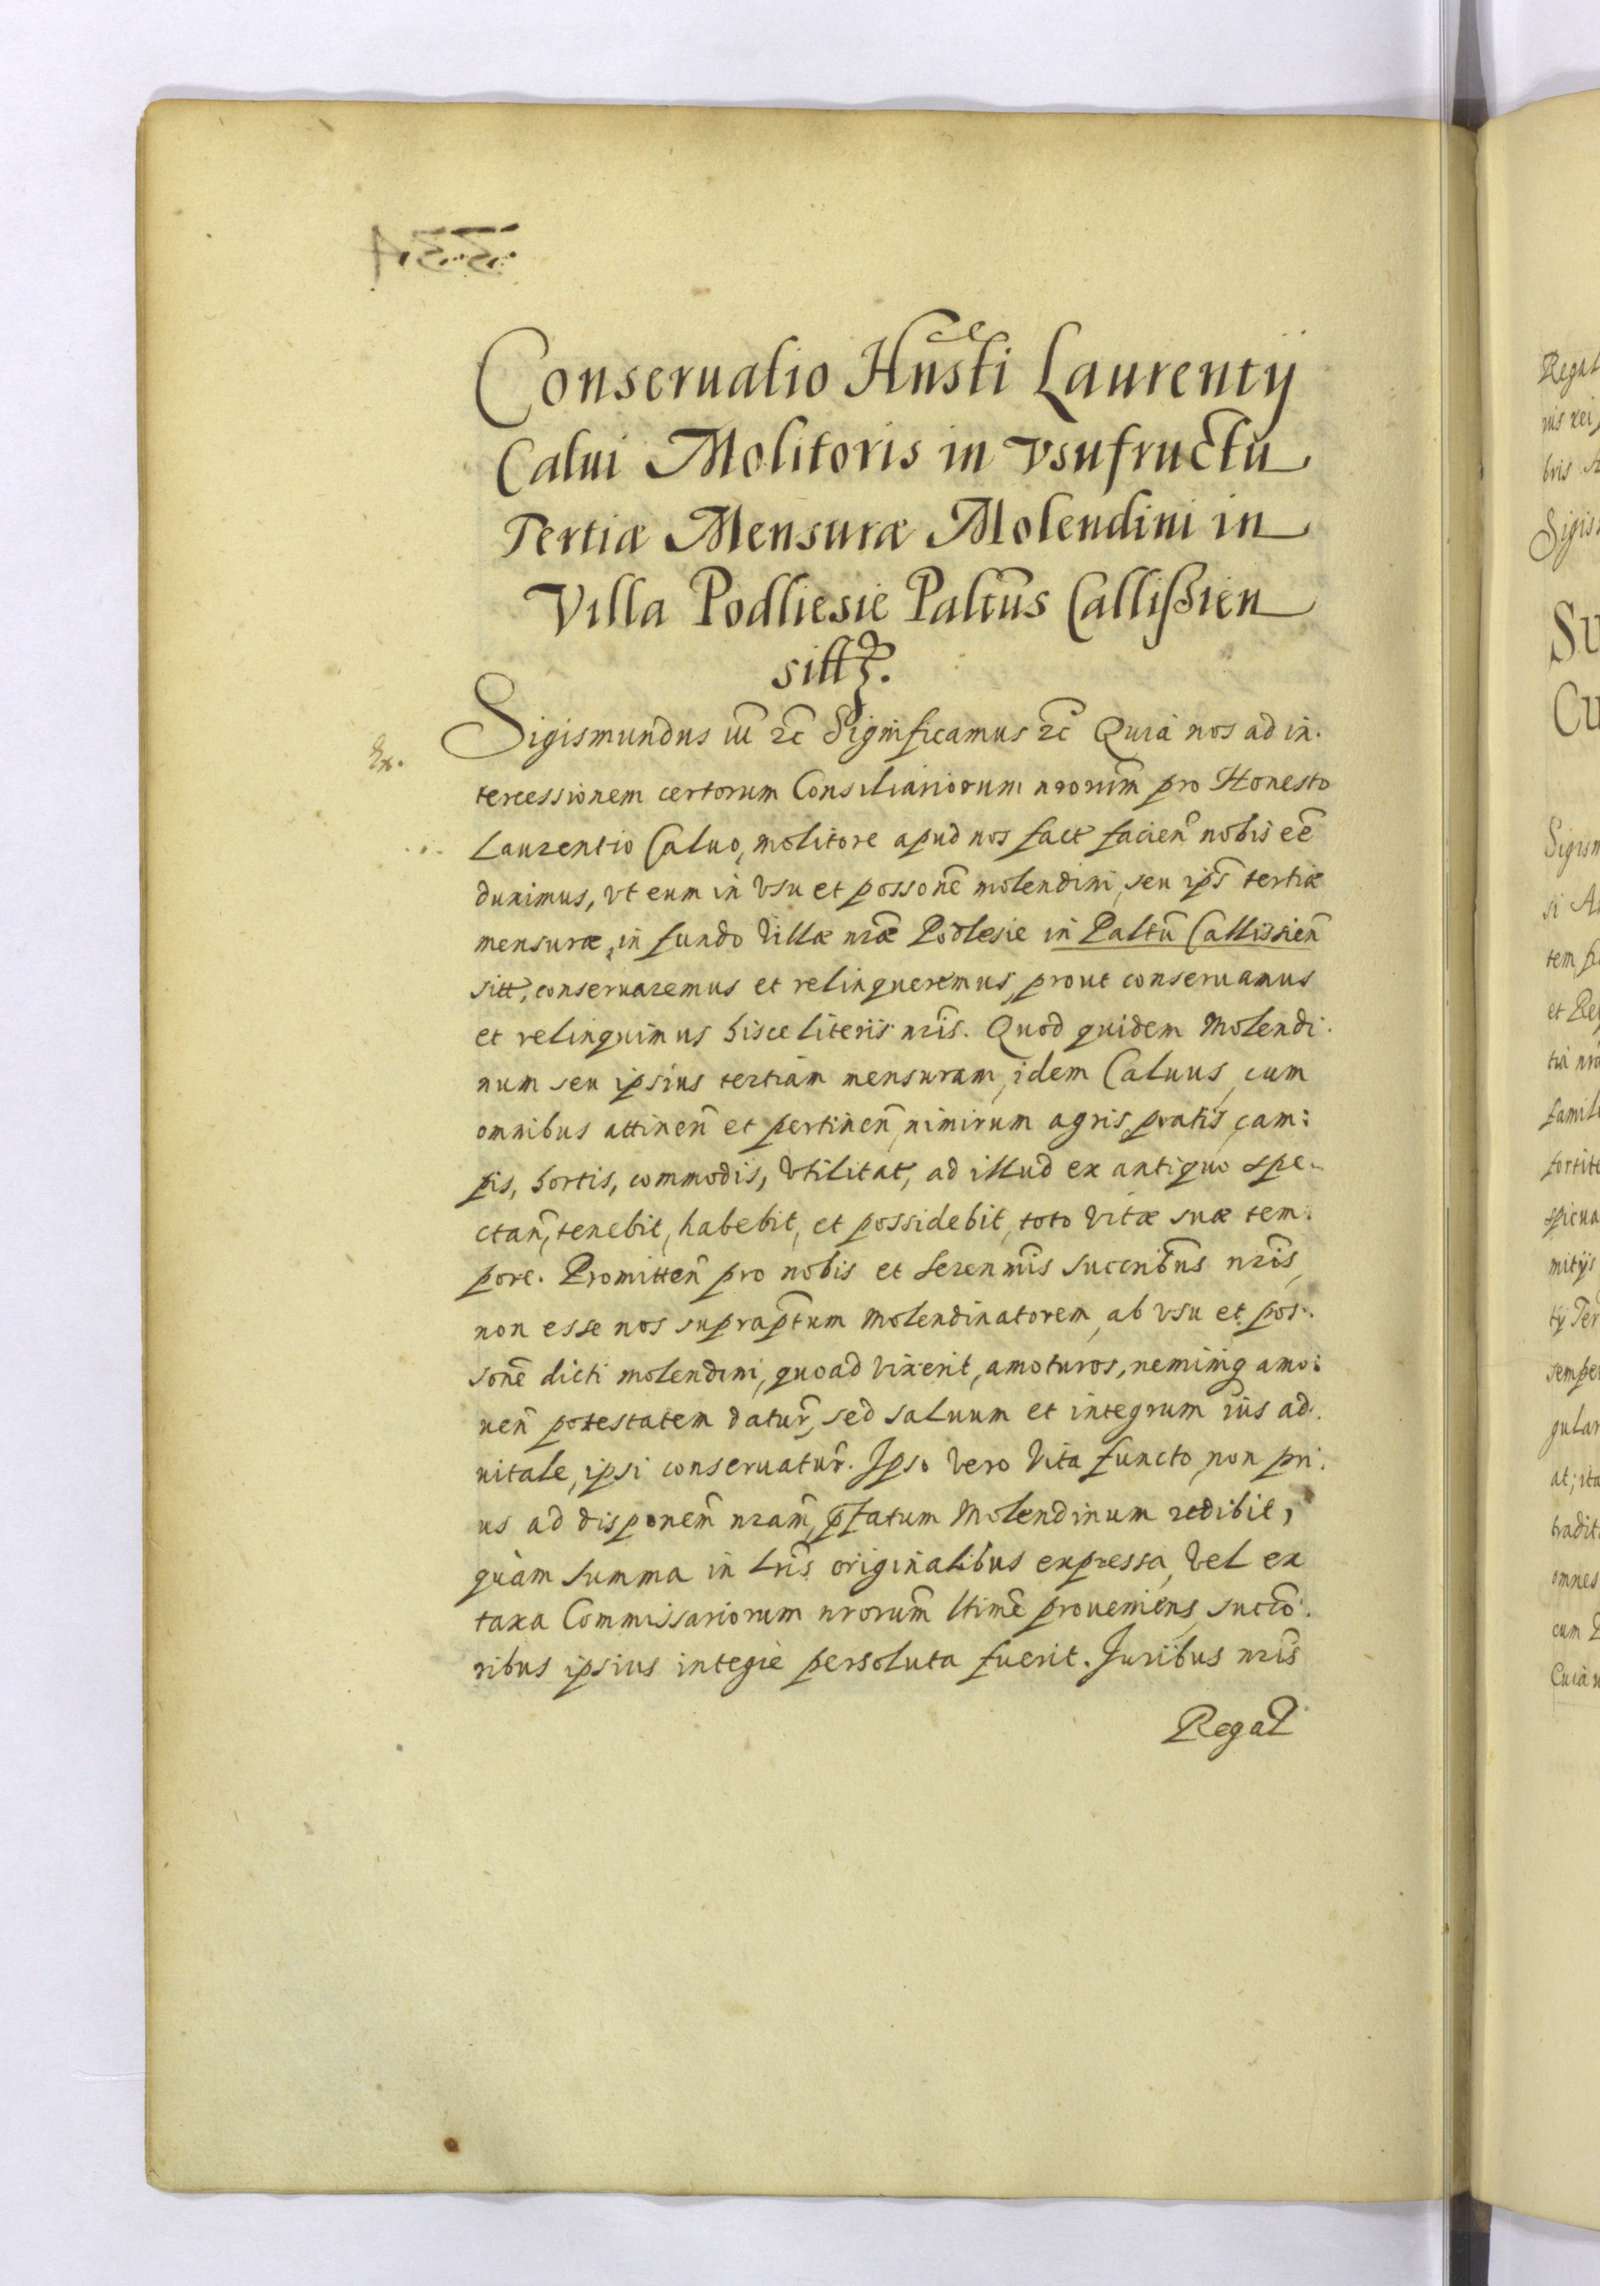 Conseruatio Hnsti Laurentij
Calui Molitoris in vsufructu
Tertiæ Mensuræ Molendini in
Villa Podliesie Paltus Callißien
sitt.
Sigismundus iii ec Significamus ec Quia nos ad in.
Ex.
tercessionem certorum Consiliariorum nrorum pro Honesto
Laurentio Caluo, molitore apud nos fact facien nobis ee
duximus, vt eum in vsu et possone molendini, seu ips tertiæ
mensuræ, in fundo Villæ nræ Podlesie in Paltu Callissien
sitt, conseruaremus et relinqueremus, prout conseruamus
et relinquimus hisce literis nris. Quod quidem Molendi.
num seu ipsius tertiam mensuram, idem Caluus, cum
omnibus attinen et pertinen, nimirum agris, pratis, cam:
pis, hortis, commodis, vtilitat, ad illud ex antiquo spe.
ctan, tenebit, habebit, et possidebit, toto vitæ suæ tem.
pore. Promitten pro nobis et Serenmis Succribus nris,
non esse nos supraptum Molendinatorem, ab vsu et pos.
sone dicti molendini, quoad vixerit, amoturos, neminiq amo:
uen potestatem datur, sed saluum et integrum ius ad.
uitale, ipsi conseruatur. Ipso vero Vita functo, non pri.
us ad disponem nram, pfatum Molendinum redibit,
quàm summa in Lris originalibus expressa, Vel ex
taxa Commissariorum nrorum ltime proueniens, succo.
ribus ipsius integrè persoluta fuerit. Juribus nris
Regal